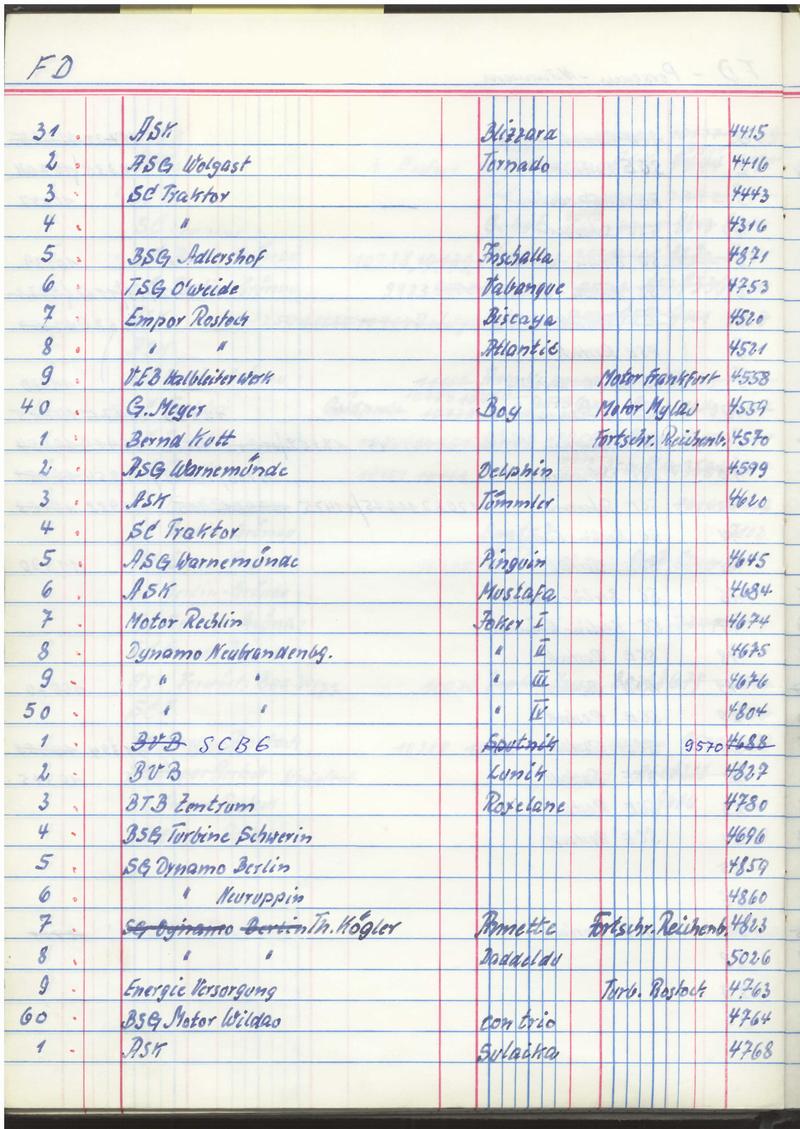 FD
31 . ASK Blizzard 4415
2 . ASG Wolgast Tornado 4416
3 . SC Traktor 4443
4 . " 4316
5 . BSG Adlershof Inschalla 4871
6 . TSG O'weide Vabanque 4753
7 . Empor Rostock Biscaya 4520
8 . " " Atlantic 4521
9 . VEB Halbleiterwerk Motor Frankfurt 4558
40 . G. Meyer Boy Motor Mylau 4559
1 . Bernd Kutt Fortschr. Reichenb. 4570
2 . ASG Warnemünde Delphin 4599
3 . ASK Tümmler 4620
4 . SC Traktor
5 . ASG Warnemünde Pinguin 4645
6 . ASK Mustafa 4684
7 . Motor Rechlin Joker I 4674
8 . Dynamo Neubrandenbg. " II 4675
9 . " " " III 4676
50 . " " " IV 4804
1 . BVB SCBG Sputnik 9570 4688
2 . BVB Lunik 4827
3 . BTB Zentrum Roxelane 4780
4 . BSG Turbine Schwerin 4696
5 . SG Dynamo Berlin 4859
6 . " Neuruppin 4860
7 . SG Dynamo Berlin Th. Kögler Annette Fortschr. Reichenb. 4823
8 . " " Daddeldu 5026
9 . Energie Versorgung Turb. Rostock 4763
60 . BSG Motor Wildau con trio 4764
1 . ASK Sulaika 4768